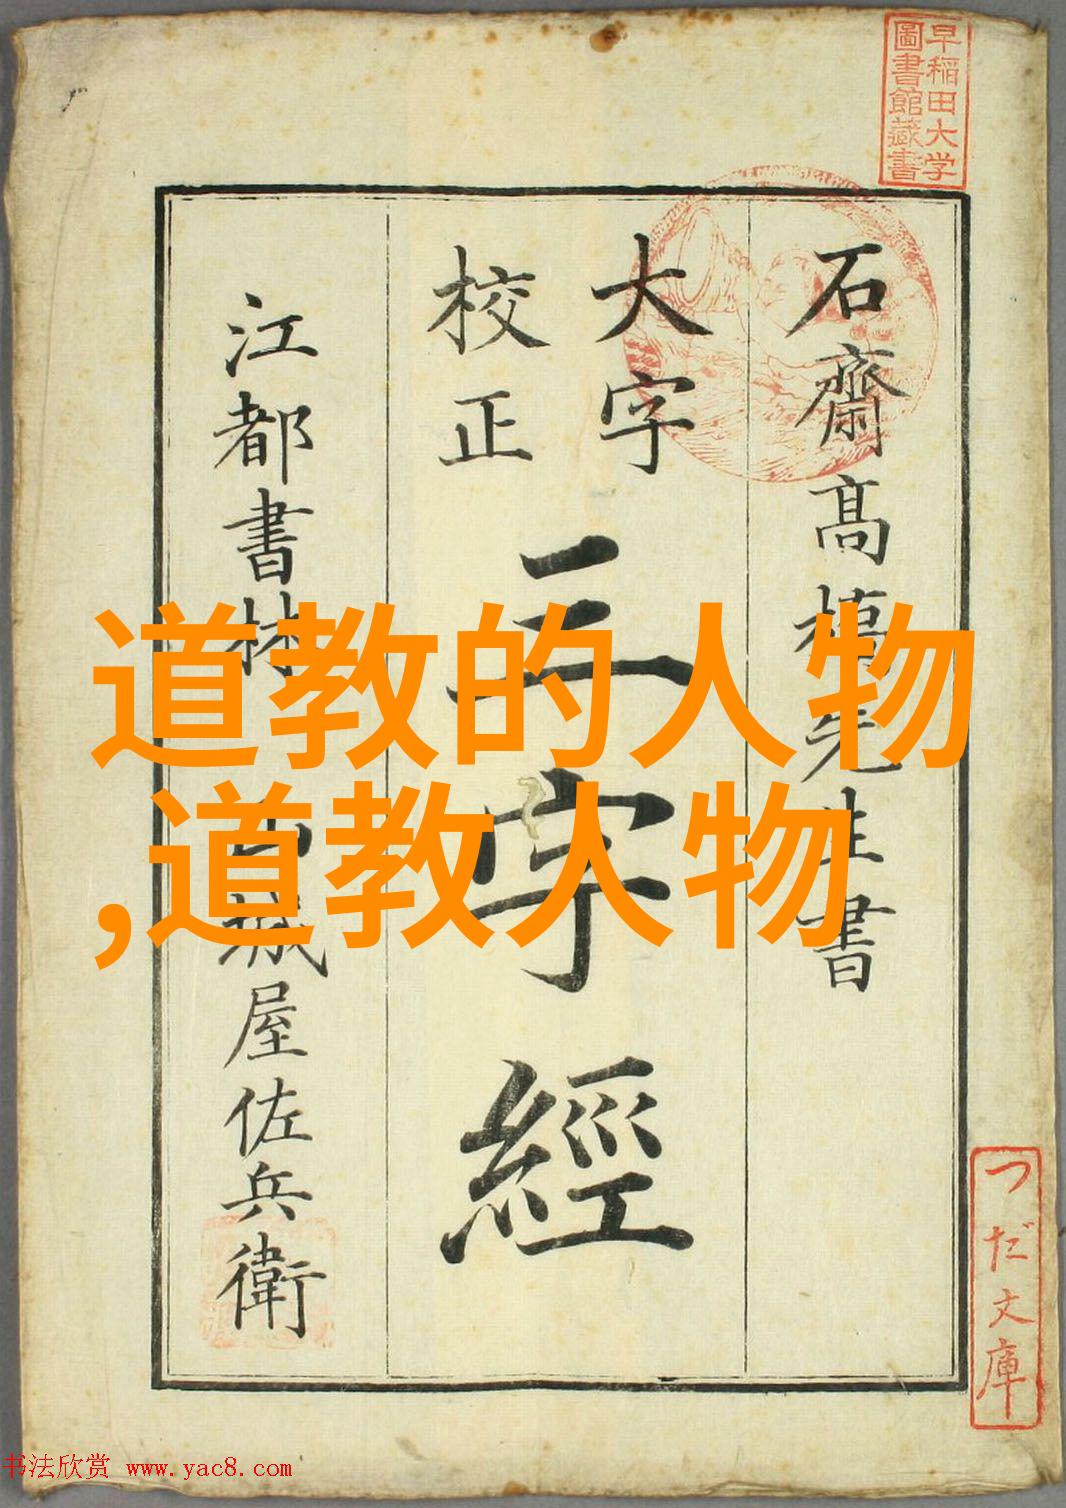 早稲田大学
圖書館藏書
石齋髙橋先生書
大字
校正
三字經
江都書林
山城屋佐兵衛
道教的人物
,道教人物
つだ文庫
书法欣赏 www.yac8.com